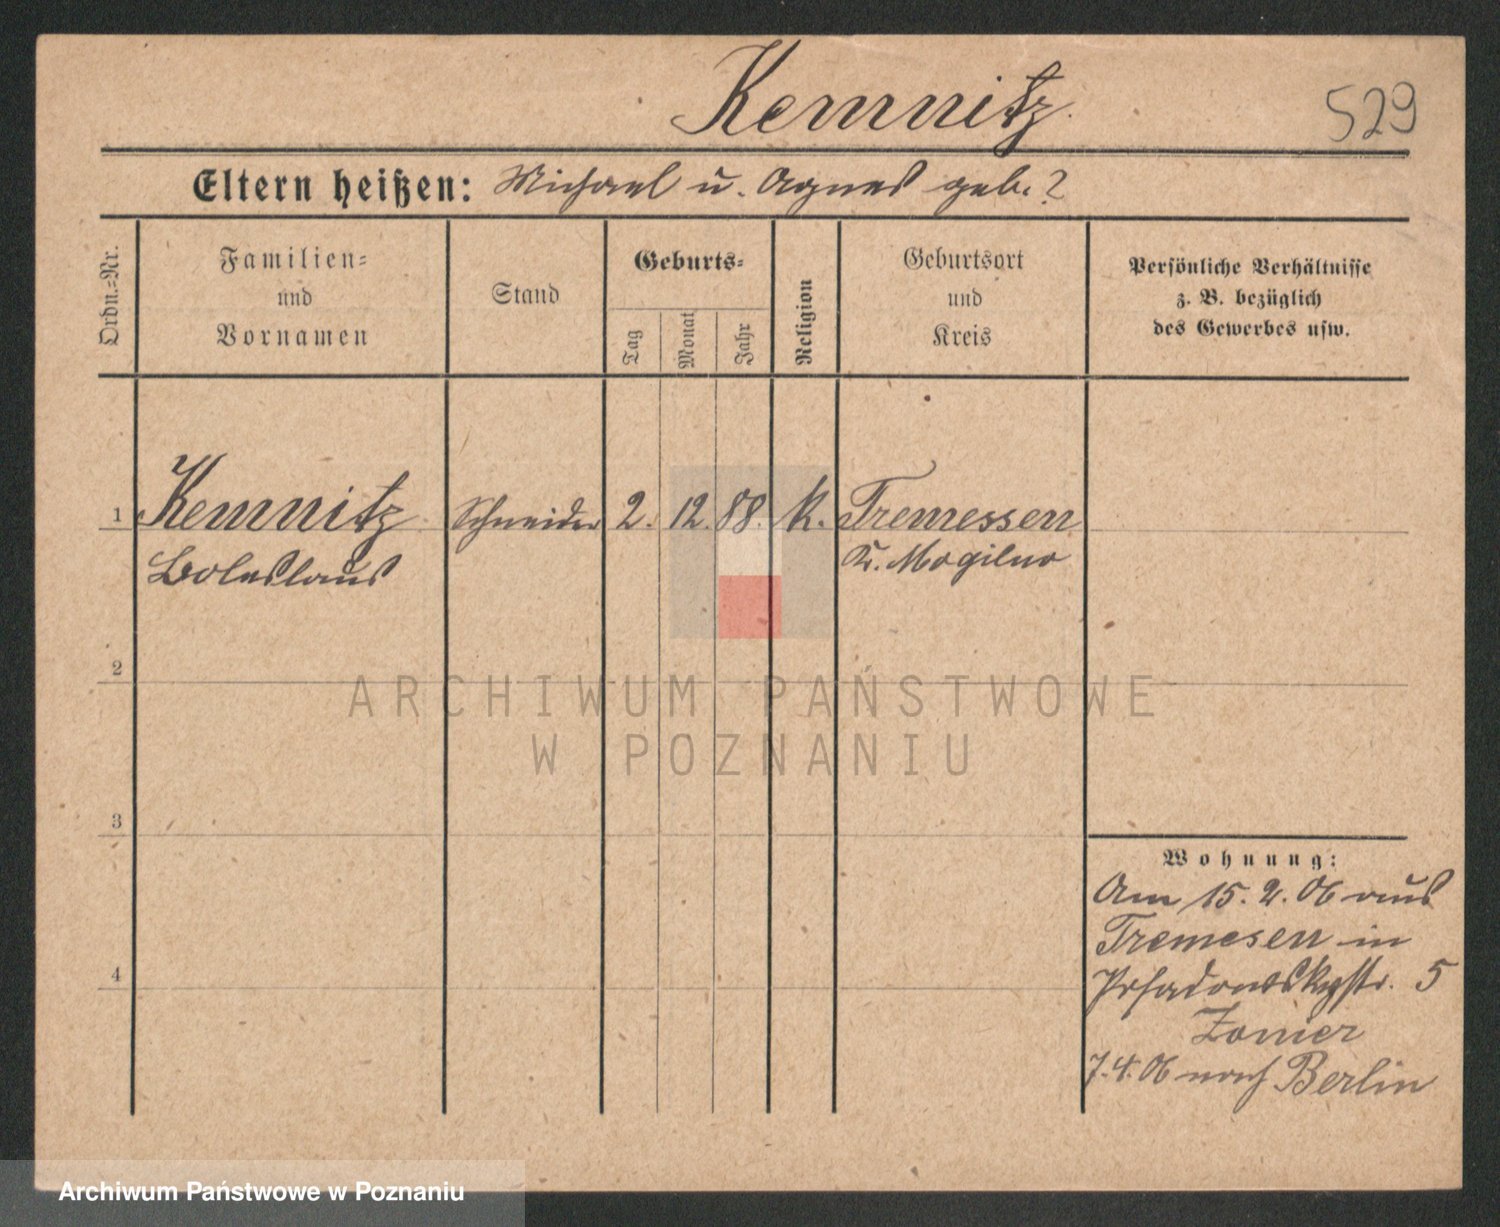 Kemnitz.
529
Eltern heißen: Michael u. Agnes geb. ?
Ordn.=Nr.
Familien=
und
Vornamen
Stand
Geburts=
Tag
Monat
Jahr
Religion
Geburtsort
und
Kreis
Persönliche Verhältnisse
z. B. bezüglich
des Gewerbes usw.
1 Kemnitz Schneider 2. 12. 88. K. Tremessen
Boleslaus Kr. Mogilno
2
ARCHIWUM PAŃSTWOWE
W POZNANIU
3
Wohnung:
Am 15. 2. 06 aus
Tremesen in
5
7. 4. 06 nach Berlin
4
Archiwum Państwowe w Poznaniu